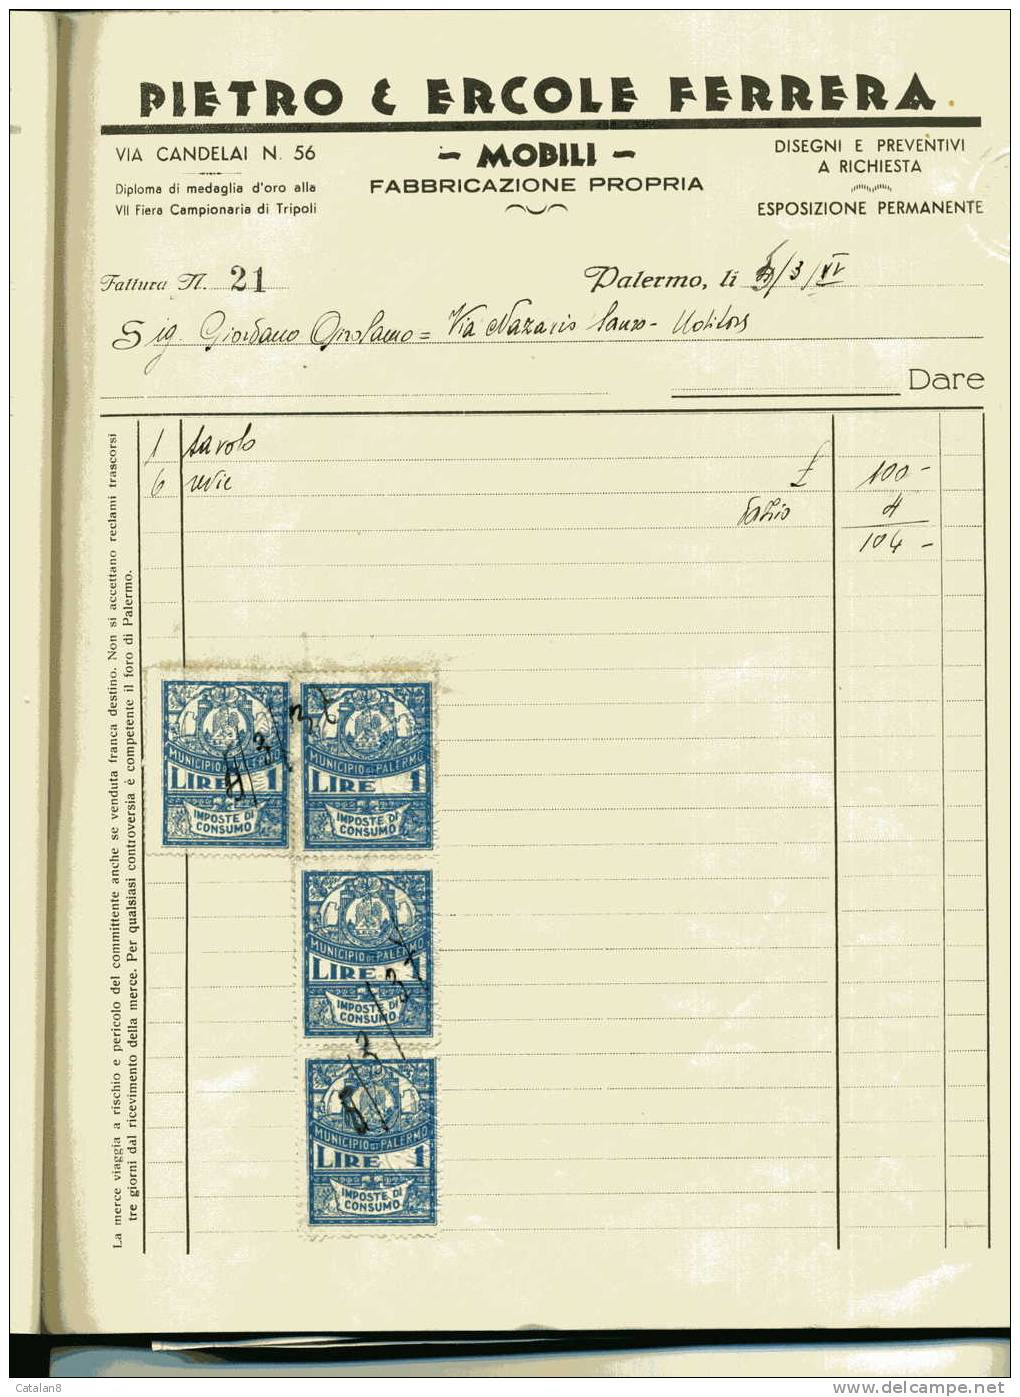 PIETRO & ERCOLE FERRERA
VIA CANDELAI N. 56
Diploma di medaglia d'oro alla
VII Fiera Campionaria di Tripoli
- MOBILI -
FABBRICAZIONE PROPRIA
DISEGNI E PREVENTIVI
A RICHIESTA
ESPOSIZIONE PERMANENTE
Fattura N. 21
Palermo, li /3/XV
Sig. Giordano Girolamo = Via Nazario Sauro -
Dare
1 tavolo
6 sedie £ 100 -
Dazio 4
104 -
La merce viaggia a rischio e pericolo del committente anche se venduta franca destino. Non si accettano reclami trascorsi
tre giorni dal ricevimento della merce. Per qualsiasi controversia è competente il foro di Palermo.
MUNICIPIO DI PALERMO
LIRE 1
IMPOSTE DI
CONSUMO
MUNICIPIO DI PALERMO
LIRE 1
IMPOSTE DI
CONSUMO
8/3/37
MUNICIPIO DI PALERMO
LIRE 1
IMPOSTE DI
CONSUMO
MUNICIPIO DI PALERMO
LIRE 1
IMPOSTE DI
CONSUMO
8/3/37
Catalan8
delcampe.net